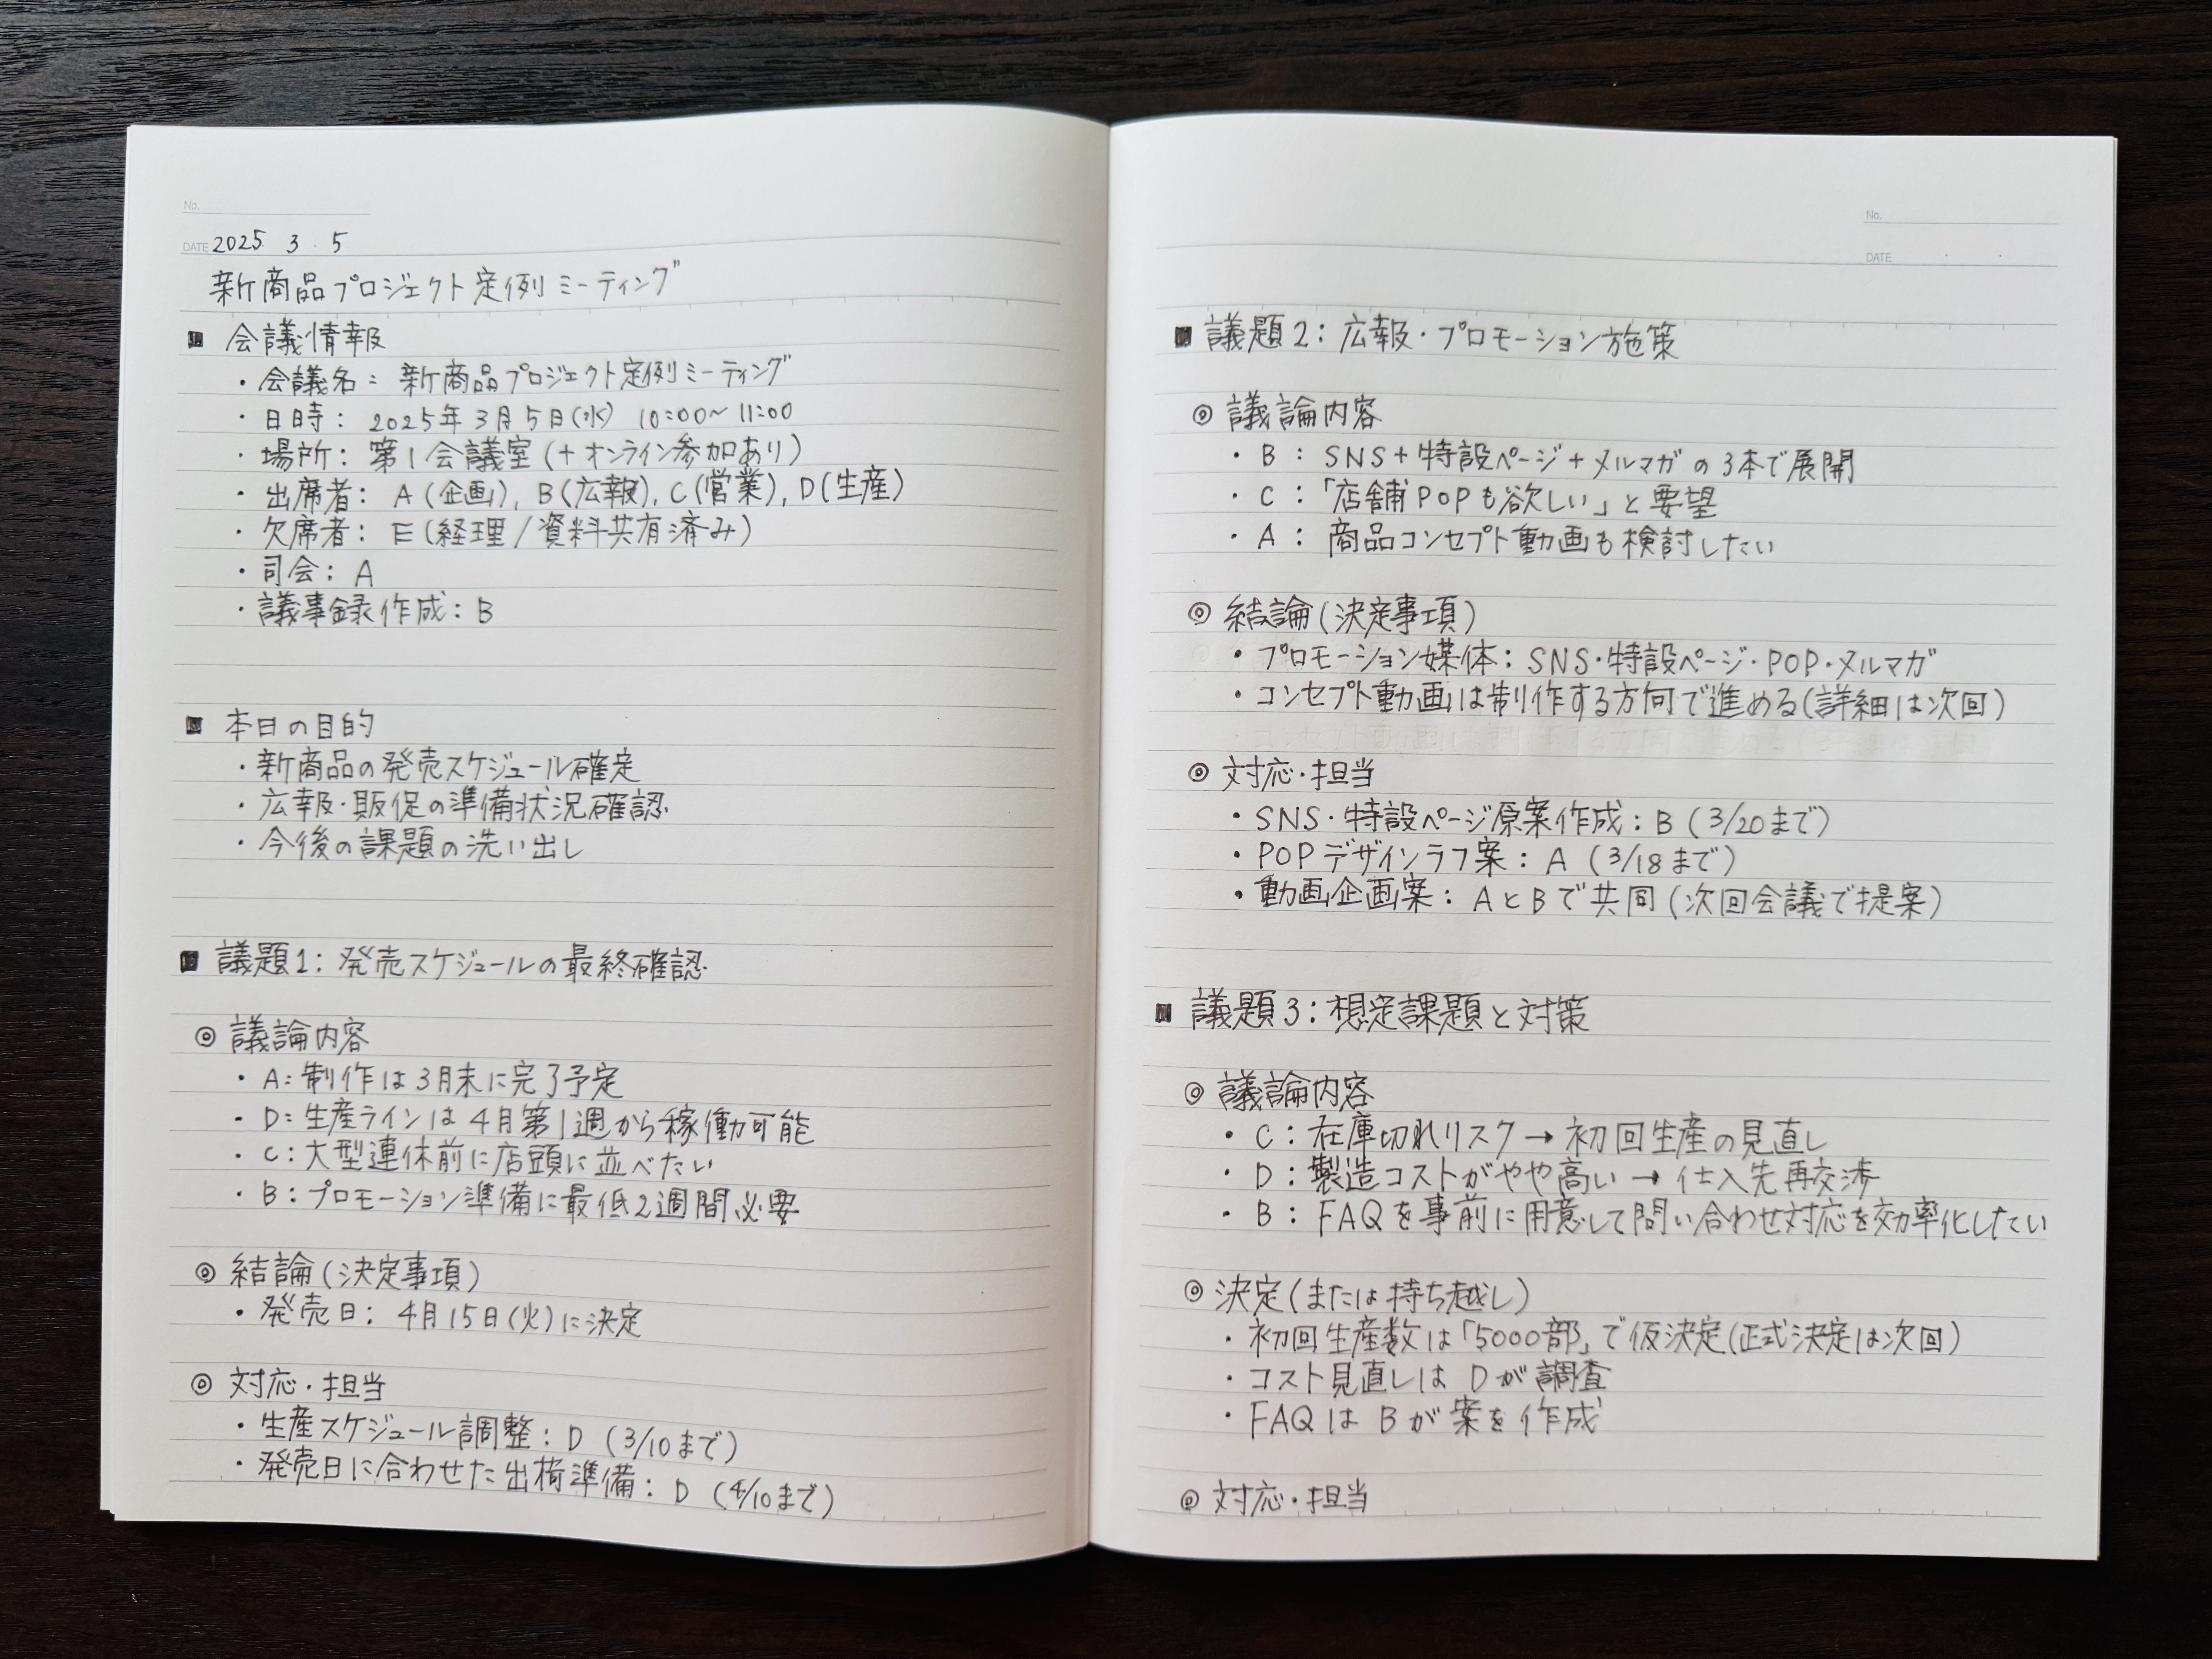 No.
DATE 2025 3 . 5
新商品プロジェクト定例ミーティング
■ 会議情報
・会議名: 新商品プロジェクト定例ミーティング
・日時: 2025年3月5日(水) 10:00~11:00
・場所: 第1会議室(+オンライン参加あり)
・出席者: A(企画), B(広報), C(営業), D(生産)
・欠席者: E(経理/資料共有済み)
・司会: A
・議事録作成: B
■ 本日の目的
・新商品の発売スケジュール確定
・広報・販促の準備状況確認
・今後の課題の洗い出し
■ 議題1: 発売スケジュールの最終確認
◎ 議論内容
・A: 制作は3月末に完了予定
・D: 生産ラインは4月第1週から稼働可能
・C: 大型連休前に店頭に並べたい
・B: プロモーション準備に最低2週間必要
◎ 結論(決定事項)
・発売日: 4月15日(火)に決定
◎ 対応・担当
・生産スケジュール調整: D (3/10まで)
・発売日に合わせた出荷準備: D (4/10まで)
No.
DATE . .
■ 議題2: 広報・プロモーション施策
◎ 議論内容
・B: SNS+特設ページ+メルマガの3本で展開
・C: 「店舗POPも欲しい」と要望
・A: 商品コンセプト動画も検討したい
◎ 結論(決定事項)
・プロモーション媒体: SNS・特設ページ・POP・メルマガ
・コンセプト動画は制作する方向で進める(詳細は次回)
◎ 対応・担当
・SNS・特設ページ原案作成: B (3/20まで)
・POPデザインラフ案: A (3/18まで)
・動画企画案: AとBで共同(次回会議で提案)
■ 議題3: 想定課題と対策
◎ 議論内容
・C: 在庫切れリスク→初回生産の見直し
・D: 製造コストがやや高い→仕入先再交渉
・B: FAQを事前に用意して問い合わせ対応を効率化したい
◎ 決定(または持ち越し)
・初回生産数は「5000部」で仮決定(正式決定は次回)
・コスト見直しは Dが調査
・FAQは Bが案を作成
◎ 対応・担当